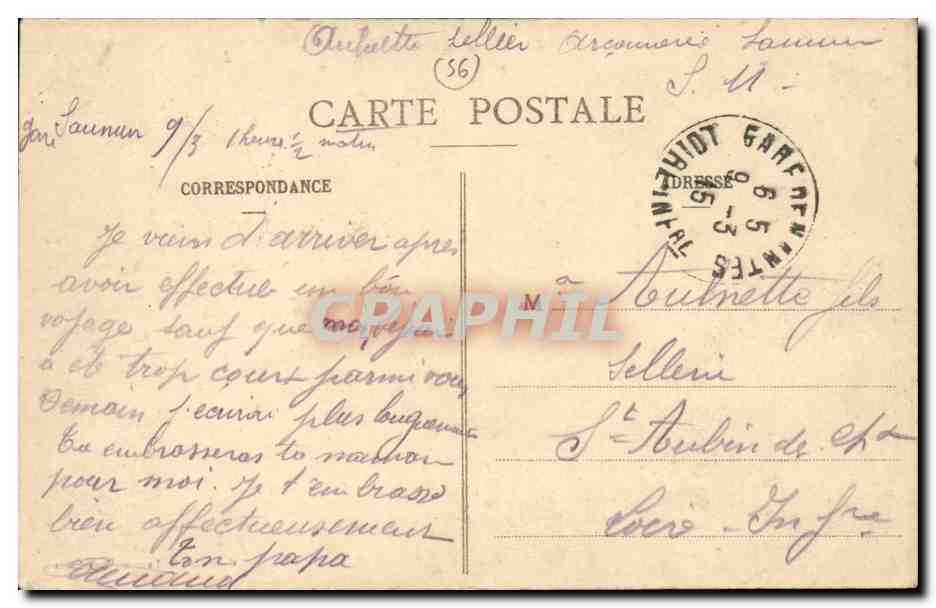 Aubrette Sellier Arçonnerie Saumur
S. M.
(56)
CARTE POSTALE
gare Saumur 9/3 1 heure 1/2 matin
CORRESPONDANCE
ADRESSE
GARE DE NANTES
6 5
9 -3
15
Je viens d'arriver après
avoir effectué un bon
voyage sauf que
a été trop court parmi vous
Demain j'écrirai plus longuement
Tu embrasseras ta maman
pour moi. Je t'embrasse
bien affectueusement
Ton papa
M à Aubrette fils
Sellerie
St Aubin de Chx
Loire-Infre
CPAPHIL